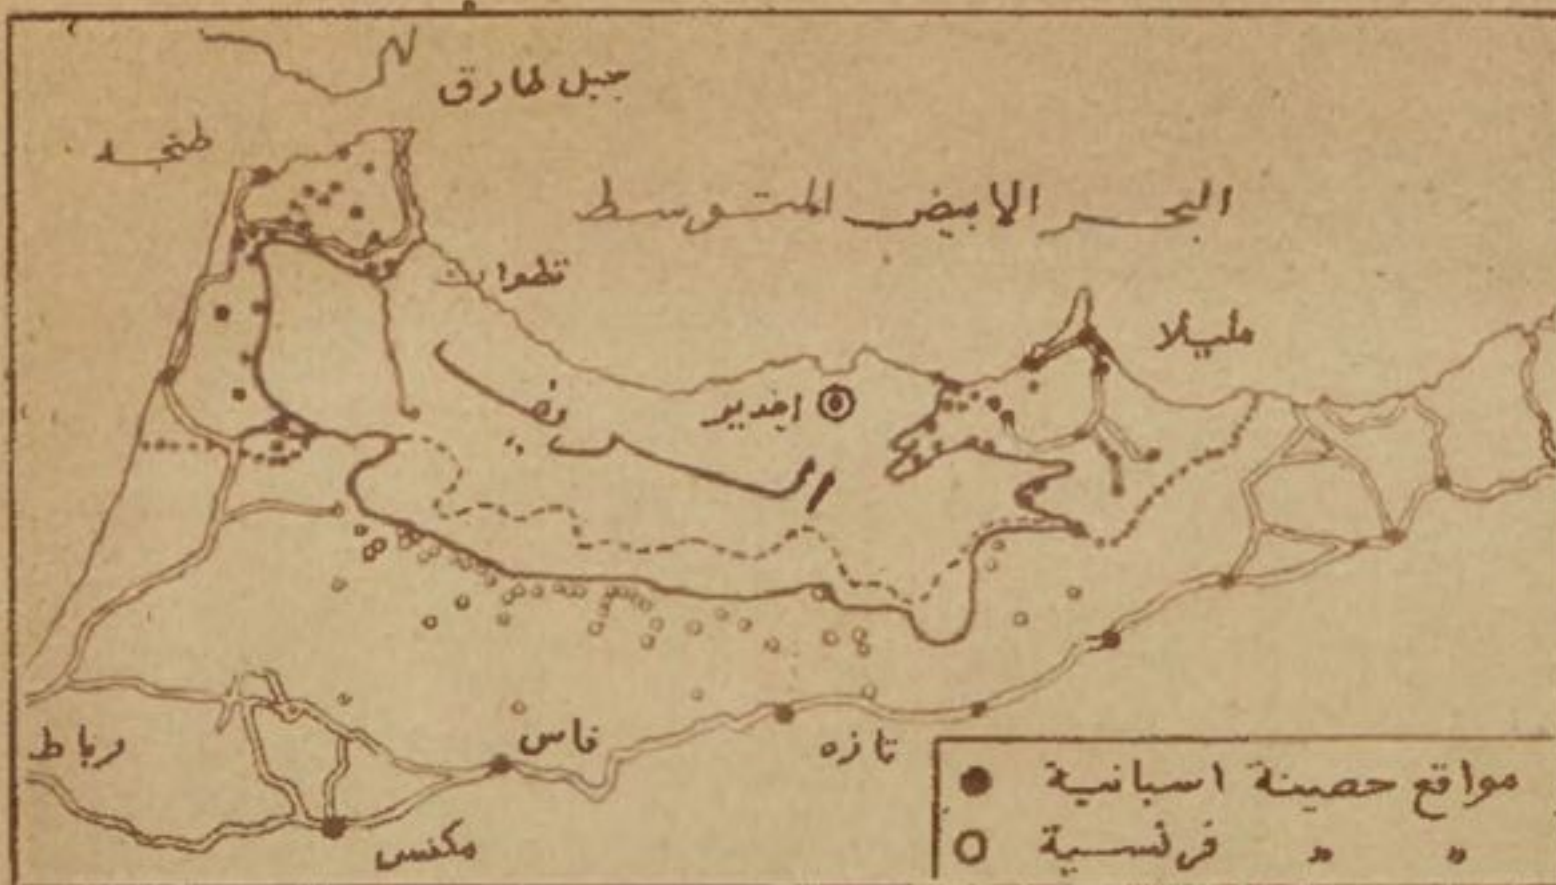 جبل طارق
طنجه
البحر الابيض المتوسط
تطوان
مليلا
اجدير
الريف
فاس
تازه
رباط
مكنس
مواقع حصينة اسبانية
„ „ فرنسية